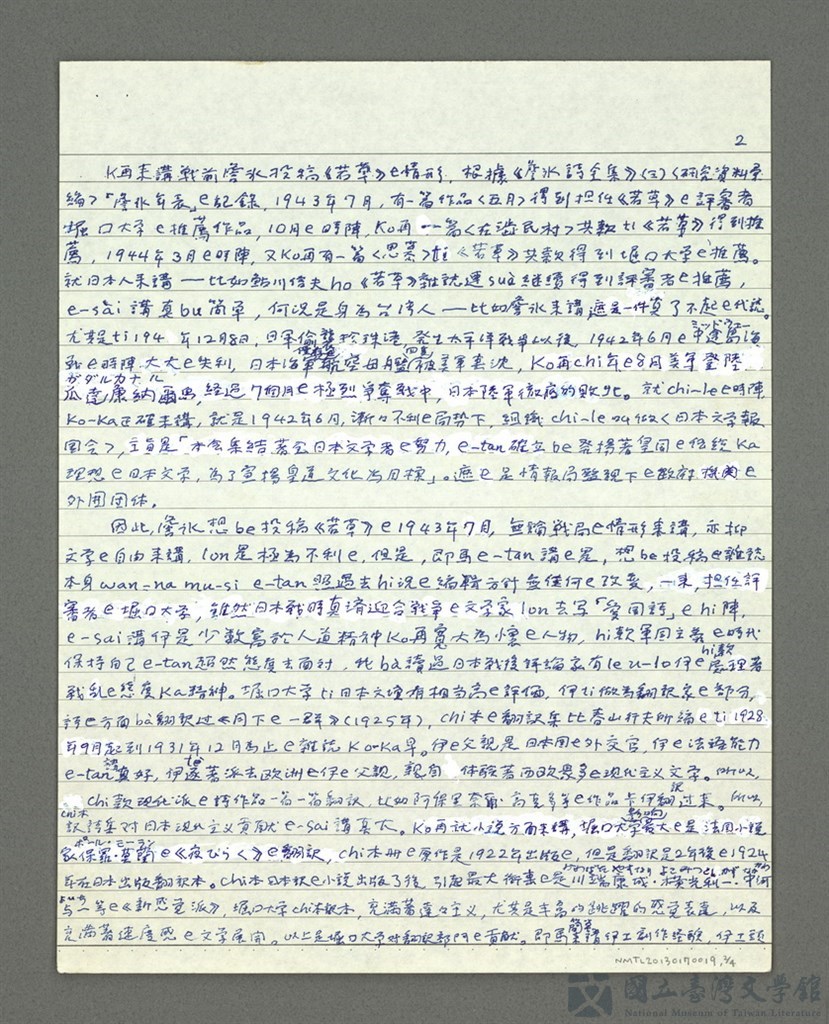 2
Ko再來講戰前詹冰投稿《若草》e情形, 根據《詹冰詩全集》(三)〈研究資料彙
編〉「詹冰年表」e紀錄, 1943年7月, 有一篇作品〈五月〉得到担任《若草》e評審者
堀口大学e推薦作品, 10月e時陣, Ko再一篇〈在澁民村〉共款ti《若草》得到推
薦, 1944年3月e時陣, 又Ko再有一篇〈思慕〉ti《若草》共款得到堀口大学e推薦。
就日本人來講——比如鮎川信夫ho《若草》雜誌連suà継續得到評審者e推薦,
e-sái講真bu簡單, 何況是身為台湾人——比如詹冰來講這是一件真了不起e代誌。
尤其是ti194 年12月8日, 日軍偷襲珍珠港, 発生太平洋戰爭以後, 1942年6月e中途島海 ミッドウェー
戰e時陣大大e失利, 日本海軍航空母艦四隻被美軍轟沈, Ko再chi年e8月美軍登陸
ガダルカナル
瓜達康納爾島, 經過7個月e極烈爭奪戰中, 日本陸軍徹底的敗北。就chi-le e時陣
Ko-Ka正確來講, 就是1942年6月, 漸々不利e局勢下, 組織chi-le叫做〈日本文学報
国会〉, 主旨是「本会集結著全日本文学者e努力, e-tan確立be発揚著皇国e傳統Ka
理想e日本文学, 為了宣揚皇道文化為目標」。這e是情報局監視下e政府機関e
外囲団体。
因此, 詹冰想be投稿《若草》e1943年7月, 無論戰局e情形來講, 亦抑
文学e自由來講, lon是極為不利e, 但是, 即馬e-tan講e是, 想be投稿e雜誌
本身wan-na mu-si e-tan照過去hi況e編輯方針無任何e改変, 一來, 担任評
審者e堀口大学, 雖然日本戰時真濟迎合戰爭e文学家lon去写「愛国詩」e hi陣,
e-sai講伊是少数富於人道精神Ko再寬大為懷e人物, hi款軍国主義e時代
保持自己e-tan超然態度去面對, 我bá讀過日本戰後評論家有le u-lo伊e hi款處理著
戰乱e態度Ka精神。堀口大学ti日本文壇有相当高e評価, 伊ti做為翻訳家e部分,
詩e方面bá翻訳过《月下e一群》(1925年), chi本e翻訳集比春山行夫所編e ti 1928
年9月起到1931年12月為止e雜誌Ko-Ka早。伊e父親是日本国e外交官, 伊e法語能力
e-tan講真好, 伊逐著派去欧洲e伊e父親, 親身体驗著西欧最多e現代主义文学。所以,
chi款現代派e詩作品一篇一篇翻訳, 比如阿保里奈爾·高克多等e作品卡伊翻訳过來。所以,
chi本訳詩集对日本現代主义貢献e-sai講真大。Ko再就小説方面來講, 堀口大学影响最大e是法国小説
ポール・モーラン
家保羅·莫蘭e《夜ひらく》e翻訳, chi本冊e原作是1922年出版e, 但是翻訳是2年後e1924
年在日本出版翻訳本。Chi本日本訳e小説出版了後, 引起最大衝擊e是川端康成·橫光利一·中河
与一等e《新感覚派》, 堀口大学chi本訳本, 充滿著達々主义, 尤其是丰富的跳躍的感覚表達, 以及
充滿著速度感e文学展開。以上是堀口大学对翻訳部門e貢献。即馬簡單講伊e創作経驗, 伊e詩
NMTL20130170019, 2/4
國立臺灣文學館
National Museum of Taiwan Literature